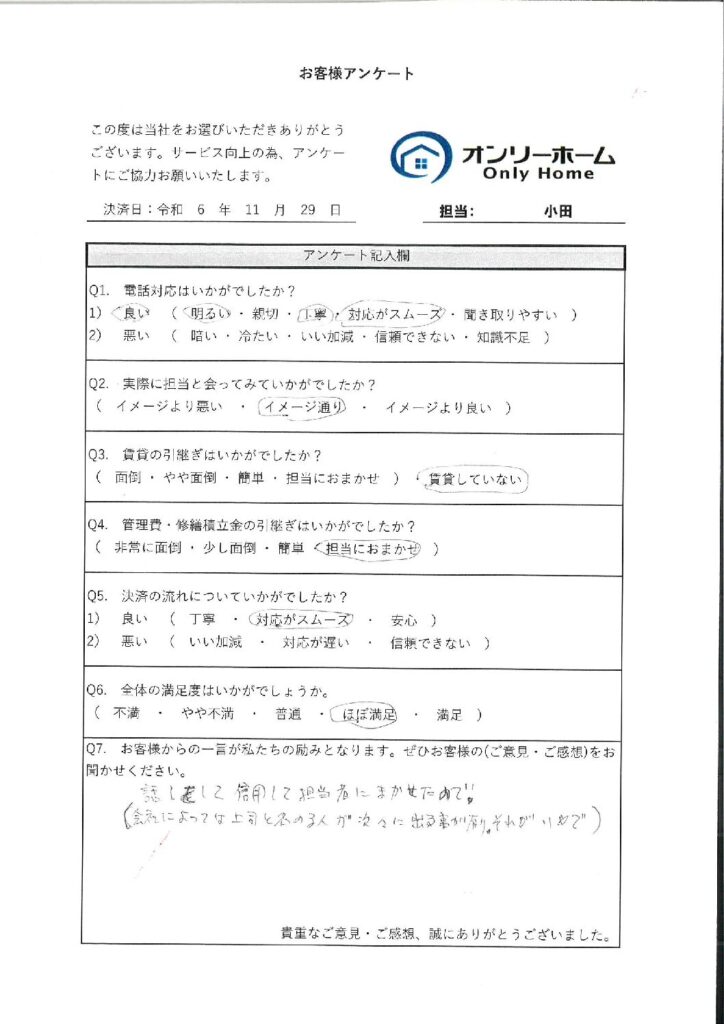 お客様アンケート
この度は当社をお選びいただきありがとう
ございます。サービス向上の為、アンケー
トにご協力お願いいたします。
オンリーホーム
Only Home
決済日：令和 6 年 11 月 29 日
担当： 小田
アンケート記入欄
Q1. 電話対応はいかがでしたか？
1) 良い （ 明るい ・ 親切 ・ 丁寧 ・ 対応がスムーズ ・ 聞き取りやすい ）
2) 悪い （ 暗い ・ 冷たい ・ いい加減 ・ 信頼できない ・ 知識不足 ）
Q2. 実際に担当と会ってみていかがでしたか？
（ イメージより悪い ・ イメージ通り ・ イメージより良い ）
Q3. 賃貸の引継ぎはいかがでしたか？
（ 面倒 ・ やや面倒 ・ 簡単 ・ 担当におまかせ ） ・ 賃貸していない
Q4. 管理費・修繕積立金の引継ぎはいかがでしたか？
（ 非常に面倒 ・ 少し面倒 ・ 簡単 ・ 担当におまかせ ）
Q5. 決済の流れについていかがでしたか？
1) 良い （ 丁寧 ・ 対応がスムーズ ・ 安心 ）
2) 悪い （ いい加減 ・ 対応が遅い ・ 信頼できない ）
Q6. 全体の満足度はいかがでしょうか。
（ 不満 ・ やや不満 ・ 普通 ・ ほぼ満足 ・ 満足 ）
Q7. お客様からの一言が私たちの励みとなります。ぜひお客様の(ご意見・ご感想)をお
聞かせください。
話し して 信用して担当者にまかせたので!
(会社によっては上司と 人が次々に出る事が有り、それが ので)
貴重なご意見・ご感想、誠にありがとうございました。